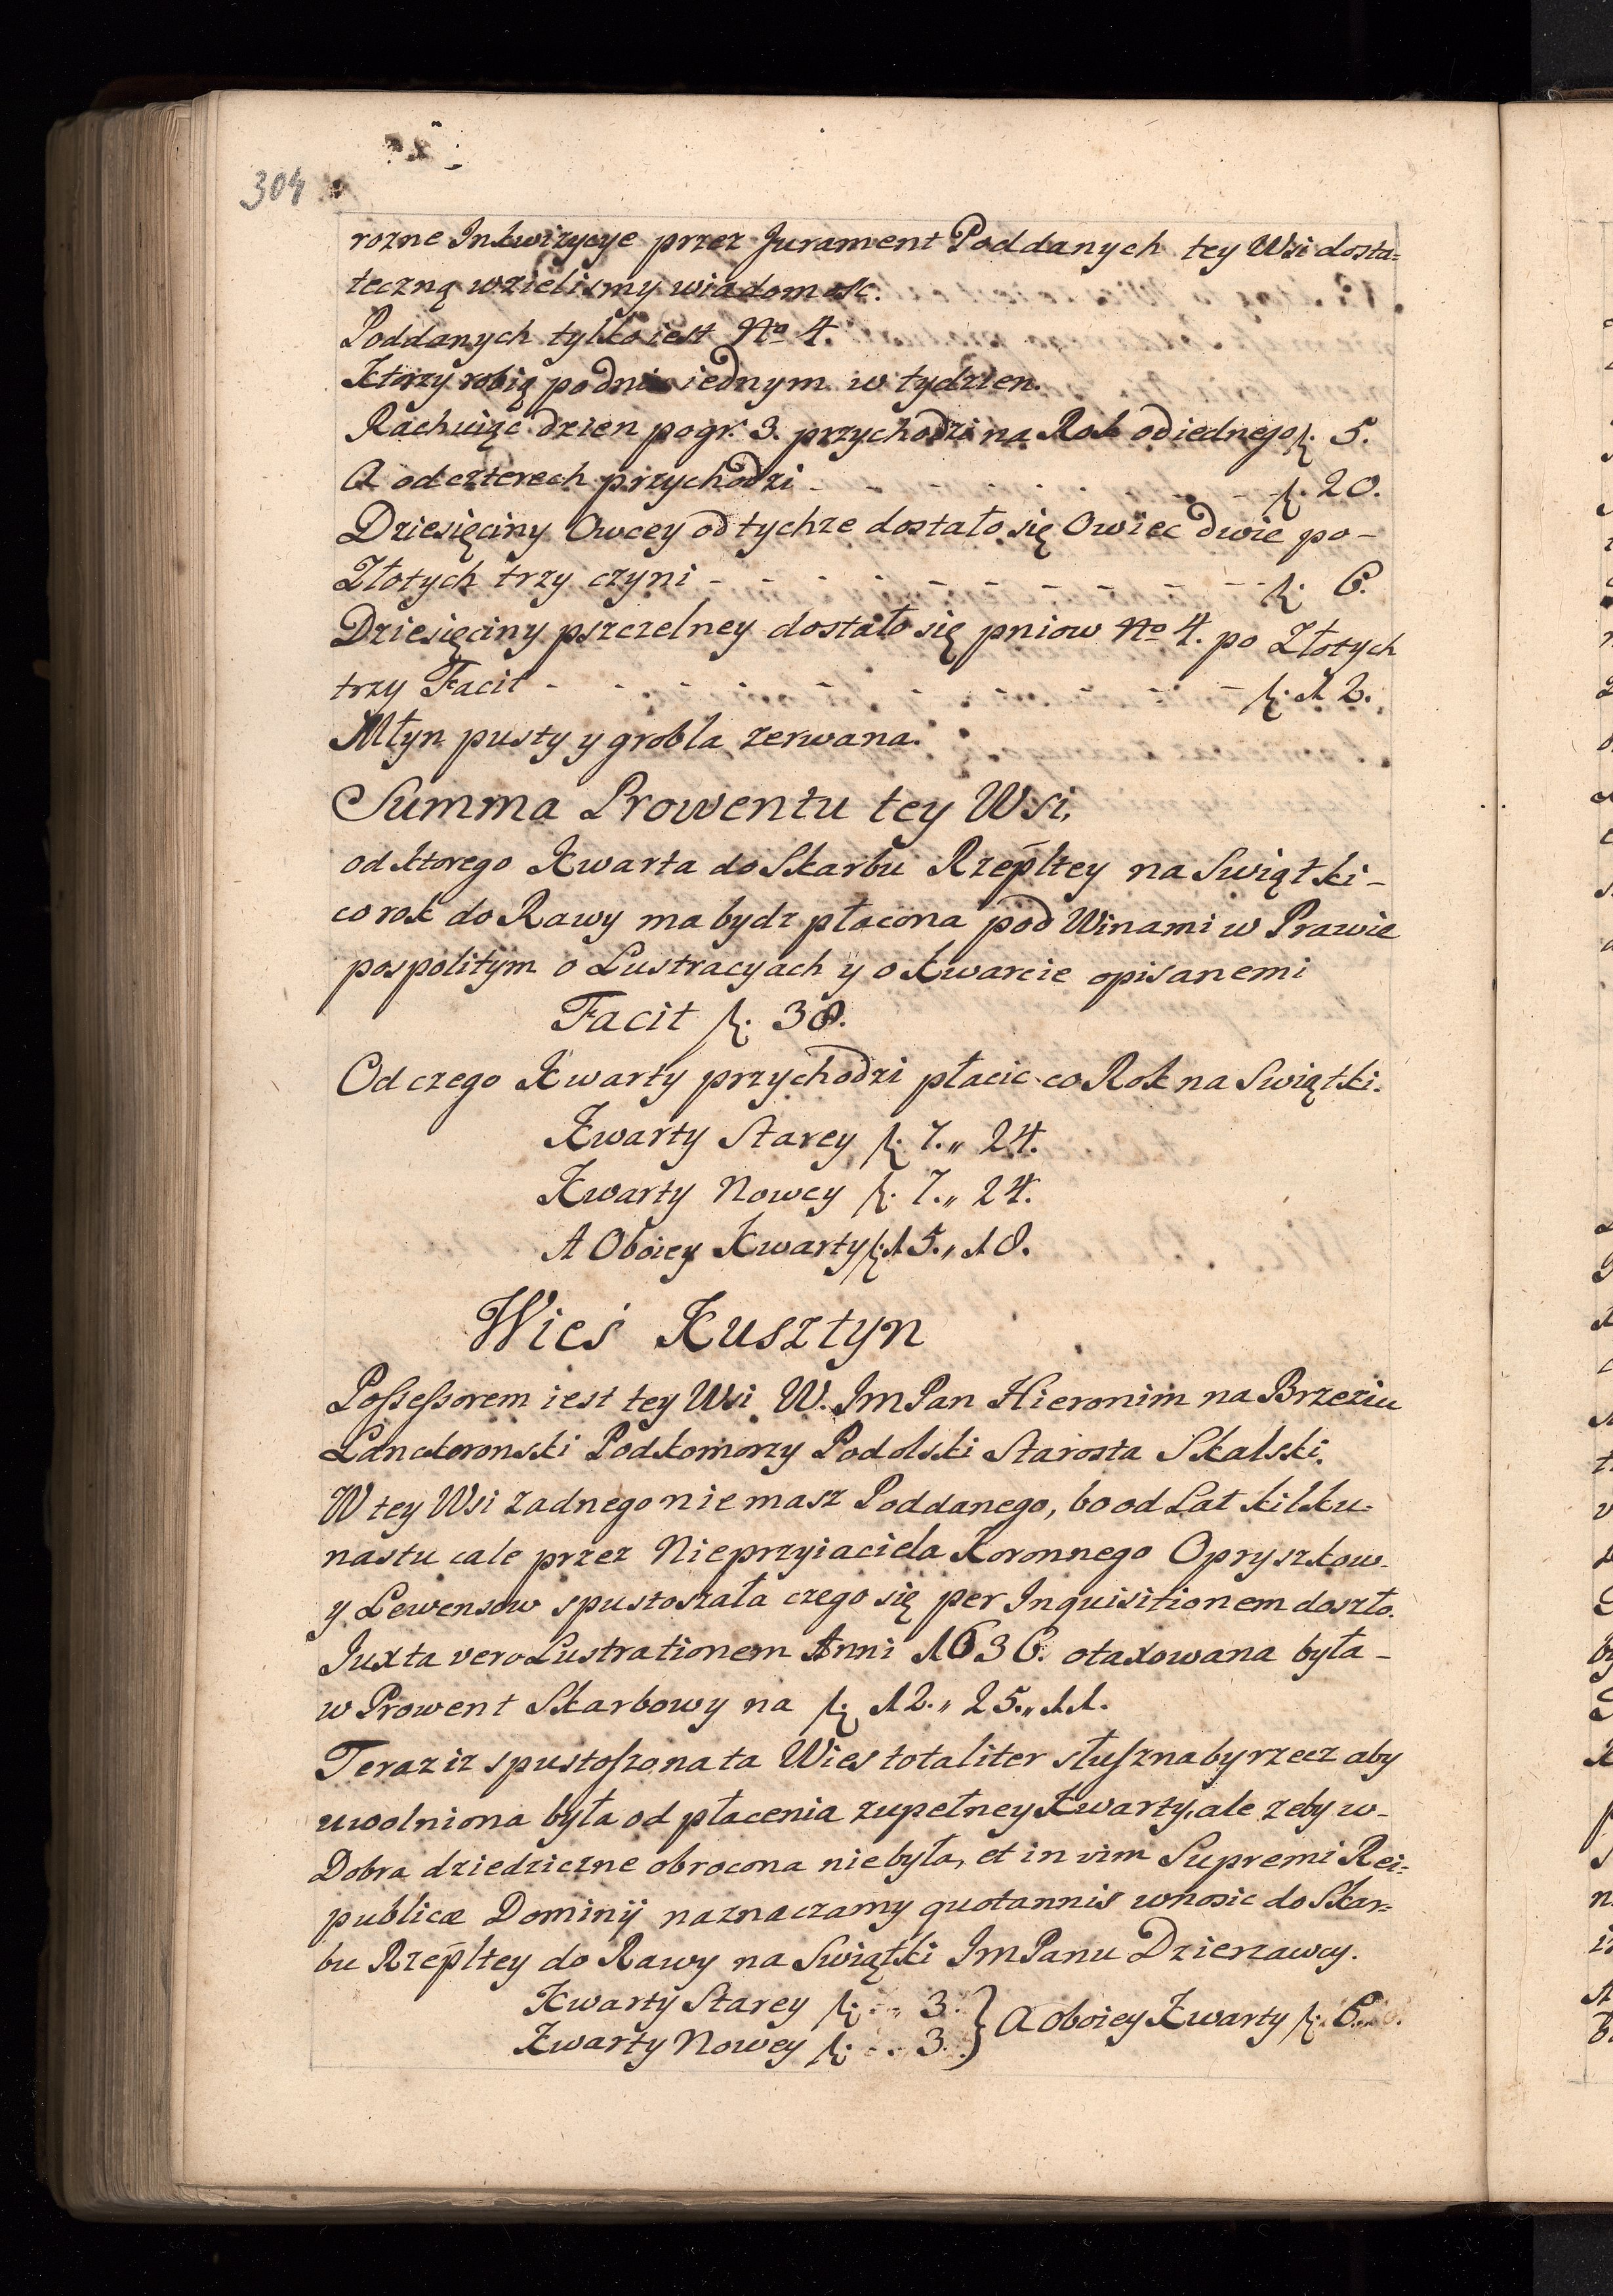 304
rozne Inkwizycye przez Jurament Poddanych tey Wsi dosta=
teczną wzielismy wiadomosc.
Poddanych tylko iest No 4.
Ktorzy robią po dniu iednym w tydzien.
Rachuiąc dzien po gr. 3. przychodzi na Rok od iednego f. 5.
A od czterech przychodzi - - - - - f. 20.
Dziesięciny Owcey od tychze dostało się Owiec dwie po -
Złotych trzy czyni - - - - - - - - - f. 6.
Dziesięciny pszczelney dostało się pniow No 4. po Złotych
trzy Facit - - - - - - - - - - f. 12.
Młyn pusty y grobla zerwana.
Summa Prowentu tey Wsi,
od ktorego Kwarta do Skarbu Rzepltey na Swiątki -
co rok do Rawy ma bydz płacona pod Winami w Prawie
pospolitym o Lustracyach y o kwarcie opisanemi
Facit f. 38.
Od czego Kwarty przychodzi płacic co Rok na Swiątki.
Kwarty Starey f. 7.,, 24.
Kwarty Nowey f. 7.,, 24.
A Oboiey Kwarty f. 15.,, 18.
Wieś Kusztyn
Possessorem iest tey Wsi W. Im Pan Hieronim na Brzeziu
Lanckoronski Podkomorzy Podolski Starosta Skalski.
W tey Wsi zadnego nie masz Poddanego, bo od Lat kilku=
nastu cale przez Nieprzyiaciela Koronnego Opryszkow -
y Lewensow spustoszała czego się per Inquisitionem doszło.
Iuxta vero Lustrationem Anni 1636. otaxowana była -
w Prowent Skarbowy na f. 12.,, 25.,, 11.
Teraz iz spustoszona ta Wies totaliter słuszna by rzecz aby
uwolniona była od płacenia zupełney Kwarty, ale zeby w -
Dobra dziedziczne obrocona nie była, et in vim Supremi Rei=
publicæ Dominij naznaczamy quotannis wnosic do Skar=
bu Rzepltey do Rawy na Swiątki Im Panu Dzierzawcy.
Kwarty Starey f. - ,, 3. } A oboiey Kwarty f. 6.
Kwarty Nowey f. - ,, 3.